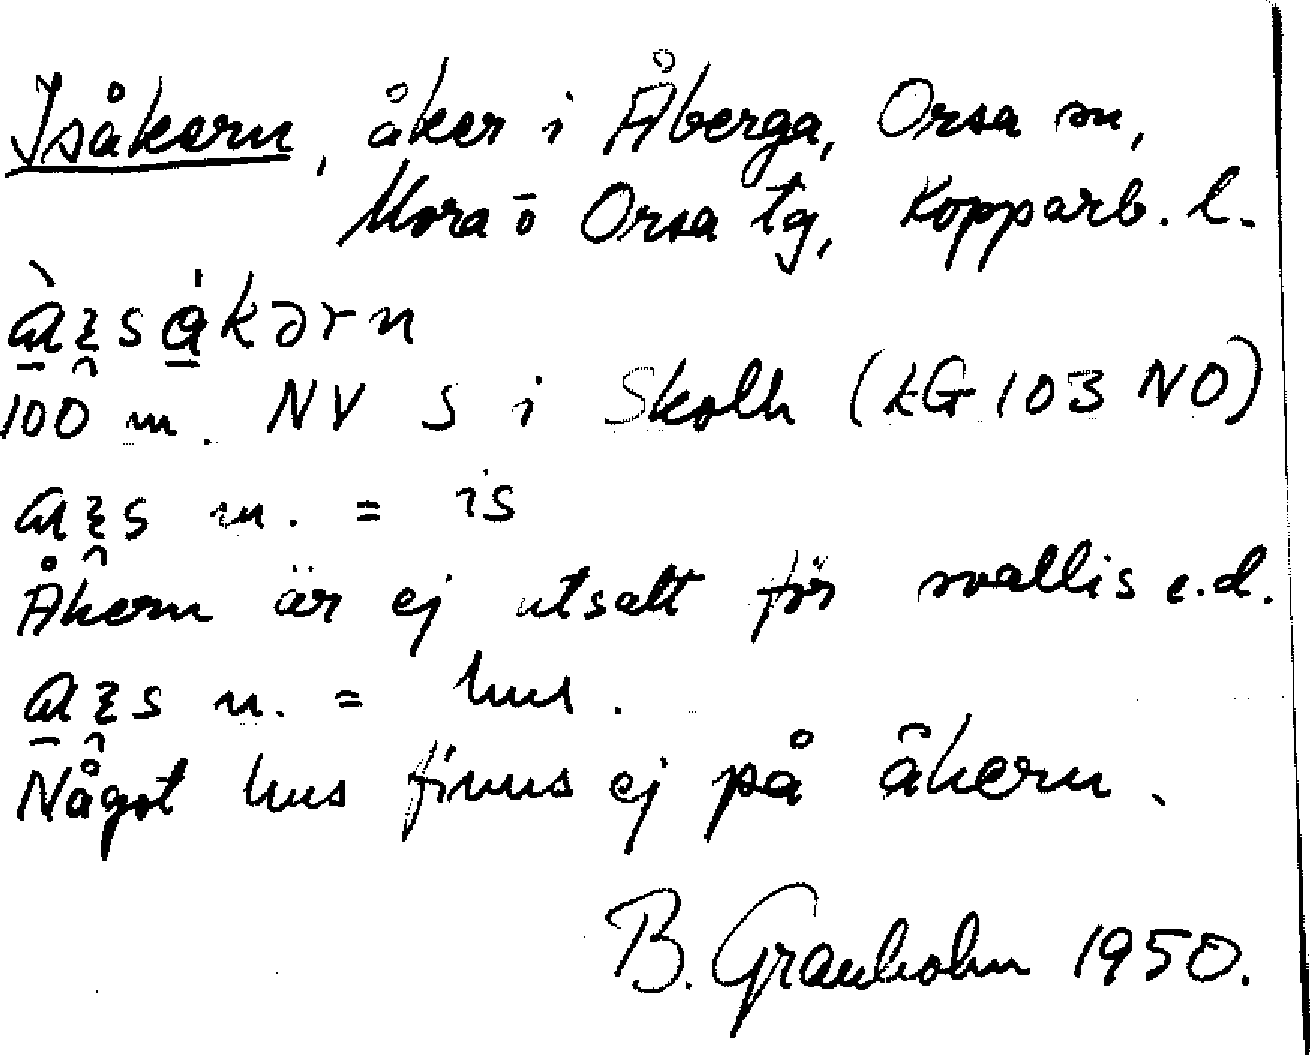 Isåkern, åker i Åberga, Orsa sn,
Mora o Orsa tg, Kopparb. l.
100 m. NV S i Skolh (kG 103 NO)
m. = is
Åkern är ej utsatt för svallis e.d.
n. = hus.
Något hus finns ej på åkern.
B. Granholm 1950.